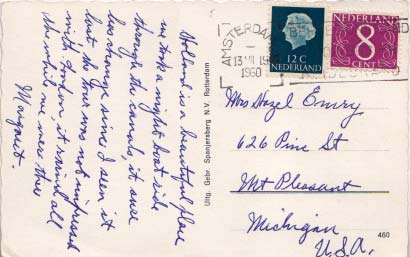 Holland is a beautiful place
we took a night boat ride
through the canals, it sure
has change since I seen it
last. The tour was not impressed
with London, it rained all
the while we were there
Margaret.
Uitg. Gebr. Spanjersberg N.V. Rotterdam
AMSTERDAM
13 VIII 19
1960
12 C
NEDERLAND
NEDERLAND
8
CENT
Mrs Hazel Emry
626 Pine St
Mt Pleasant
Michigan
U.S.A.
460